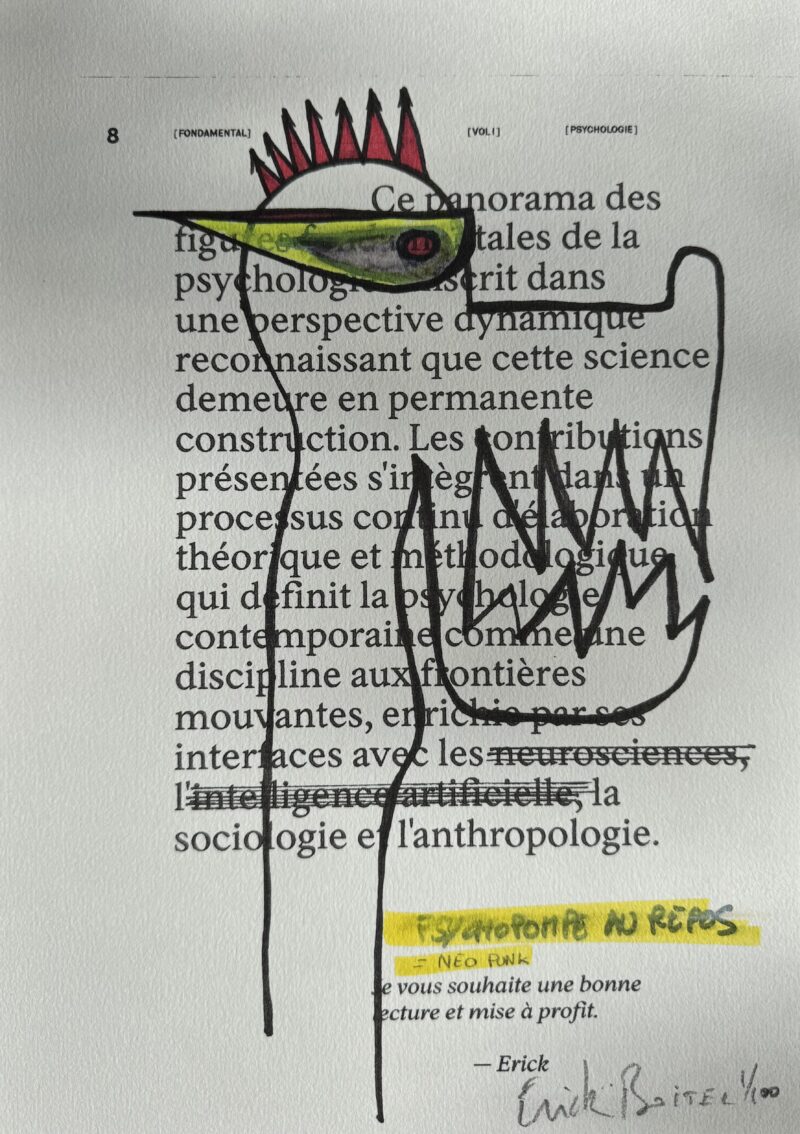 8 [FONDAMENTAL] [VOL I] [PSYCHOLOGIE]
Ce panorama des
figures fondamentales de la
psychologie s'inscrit dans
une perspective dynamique
reconnaissant que cette science
demeure en permanente
construction. Les contributions
présentées s'intègrent dans un
processus continu d'élaboration
théorique et méthodologique
qui définit la psychologie
contemporaine comme une
discipline aux frontières
mouvantes, enrichie par ses
interfaces avec les neurosciences,
l'intelligence artificielle, la
sociologie et l'anthropologie.
PSYCHOPOMPE AU REPOS
= NÉO PUNK
Je vous souhaite une bonne
lecture et mise à profit.
— Erick
Erick 1/100